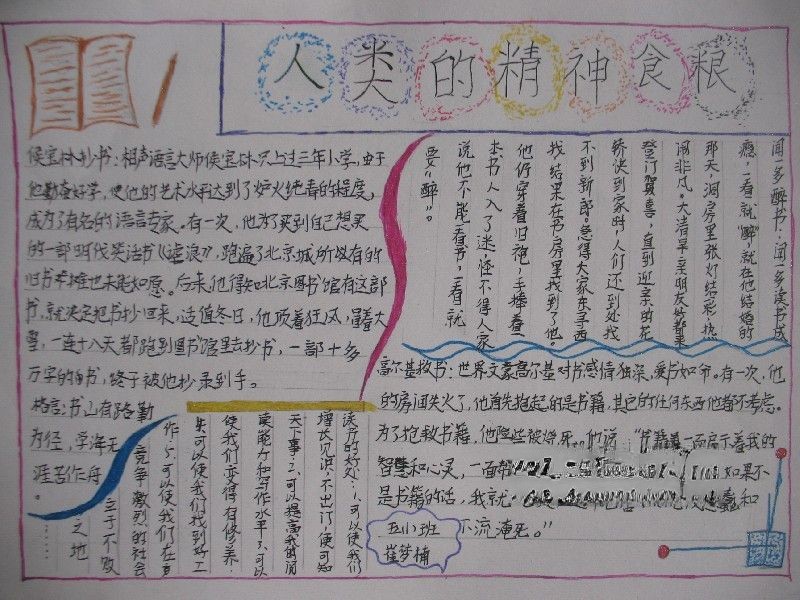 人类的精神食粮
侯宝林抄书：相声语言大师侯宝林只上过三年小学，由于
他勤奋好学，使他的艺术水平达到了炉火纯青的程度，
成为了有名的语言专家。有一次，他为了买到自己想买
的一部明代笑话书《谑浪》，跑遍了北京城所以有的
旧书摊也未能如愿。后来，他得知北京图书馆有这部
书，就决定把书抄回来，适值冬日，他顶着狂风，冒着大
雪，一连十八天都跑到图书馆里去抄书，一部十多
万字的书，终于被他抄录到手。
格言：书山有路勤
为径，学海无
涯苦作舟
。
闻一多醉书：闻一多读书成
瘾，一看就"醉"，就在他结婚的
那天，洞房里张灯结彩，热
闹非凡。大清早亲朋友好都来
登门贺喜，直到迎亲的花
轿快到家时，人们还到处找
不到新郎。急得大家东寻西
找，结果在书房里找到了他。
他仍穿着旧袍，手捧着一
本书人入了迷，怪不得人家
说他不能看书，一看就
要"醉"。
高尔基救书：世界文豪高尔基对书感情独深，爱书如命。有一次，他
的房间失火了，他首先抱起的是书籍，其它的任何东西他都不考虑。
为了抢救书籍，他险些被烧死。他说："书籍一面启示着我的
智慧和心灵，一面帮 如果不
是书籍的话，我就 和
不流淹死。"
读书的好处：1、可以使我们
增长见识，不出门，便可知
天下事；2、可以提高我们阅
读能力和写作水平；3、可以
使我们变得有修养；
4、可以使我们找到好工
作；5、可以使我们在竞
竞争激烈的社会
立于不败
之地
……
五(1)班
崔梦楠